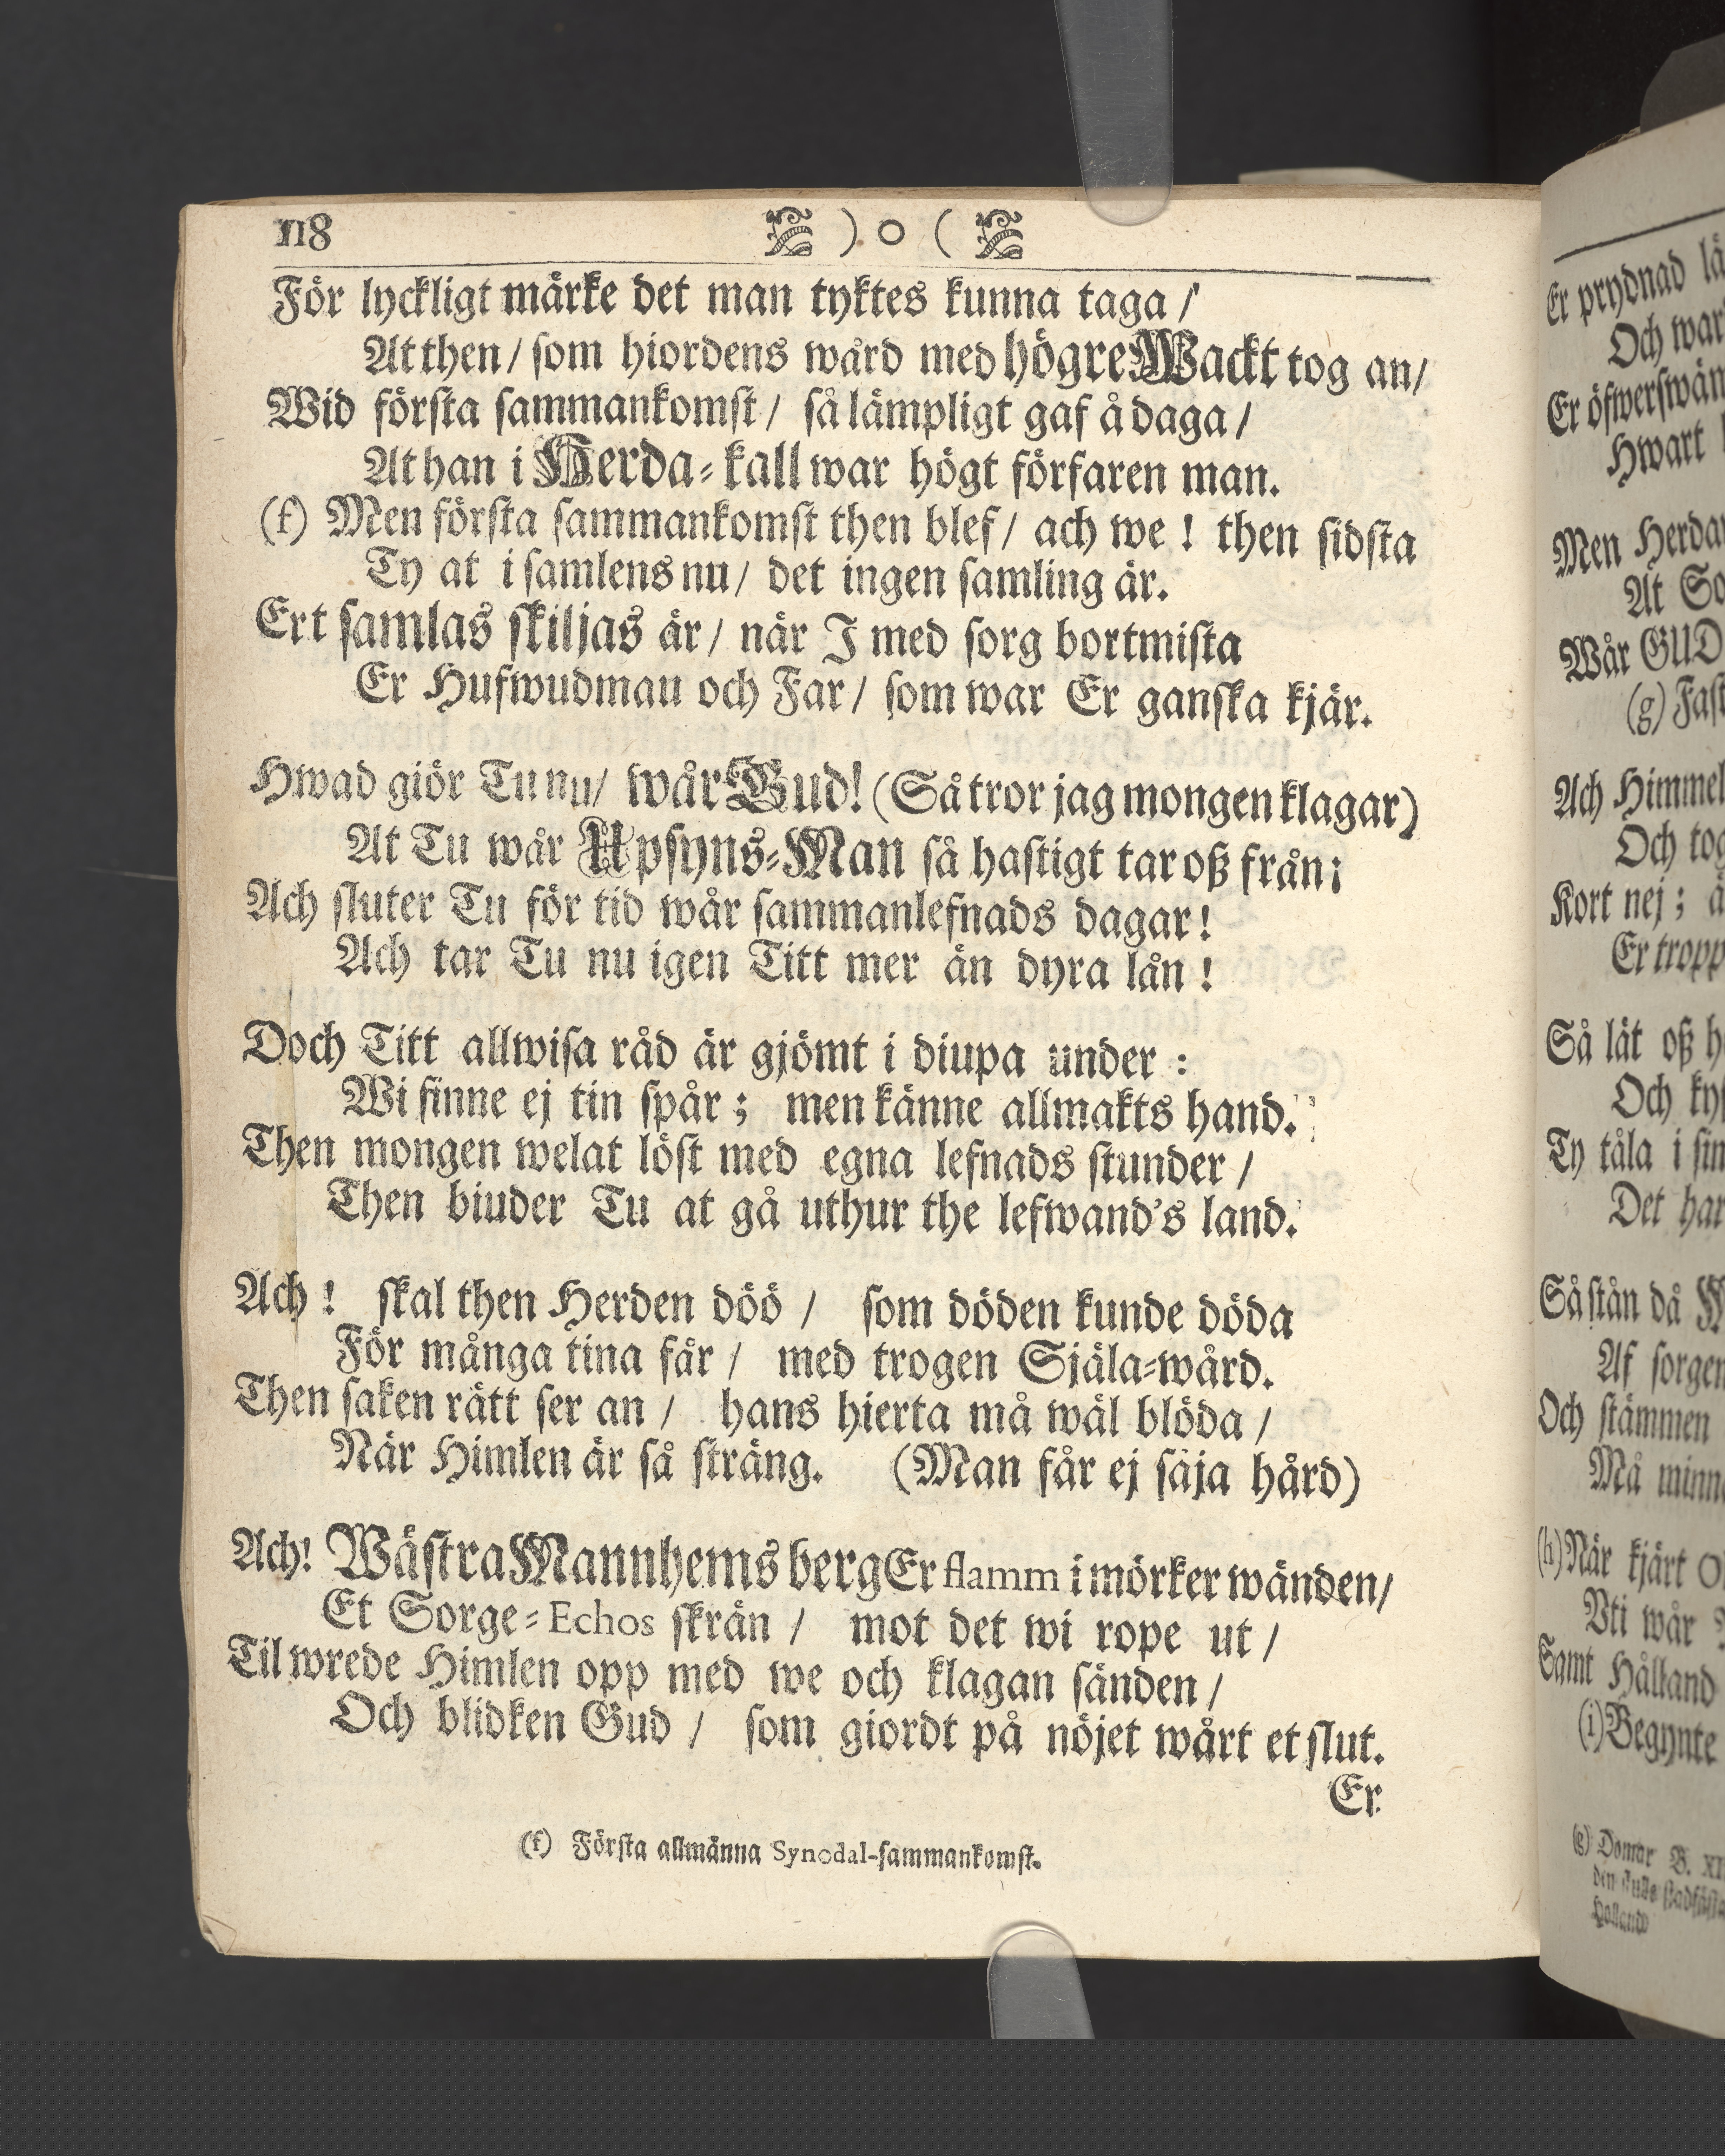 118 ) o (
För lyckligt märke det man tyktes kunna taga /
At then / som hiordens wård med högre Wackt tog an /
Wid första sammankomst / så lämpligt gaf å daga /
At han i Herda-kall war högt förfaren man.
(f) Men första sammankomst then blef / ach we ! then sidsta
Ty at i samlens nu / det ingen samling är.
Ert samlas skiljas är / när I med sorg bortmista
Er Hufwudmau och Far / som war Er ganska kjär.
Hwad giör Tu nu / wår Gud! (Så tror jag mongen klagar)
At Tu wår Upsyns-Man så hastigt tar oß från;
Ach sluter Tu för tid wår sammanlefnads dagar!
Ach tar Tu nu igen Titt mer än dyra lån !
Doch Titt allwisa råd är gjömt i diupa under :
Wi finne ej tin spår ; men känne allmakts hand.
Then mongen welat löst med egna lefnads stunder /
Then biuder Tu at gå uthur the lefwand's land.
Ach ! skal then Herden döö / som döden kunde döda
För många tina får / med trogen Själa-wård.
Then saken rätt ser an / hans hierta må wäl blöda /
När Himlen är så sträng. (Man får ej säja hård)
Ach! Wästra Mannhems berg Er flamm i mörker wänden /
Et Sorge-Echos skrän / mot det wi rope ut /
Til wrede Himlen opp med we och klagan sänden /
Och blidken Gud / som giordt på nöjet wårt et slut.
Er
(f) Första allmänna Synodal-sammankomst.
Er prydnad
Och
Er
Hwart
Men
At
Wår GUD
(g)
Ach
Och
Kort nej ;
Er
Så lät oß
Och
Ty tåla i
Det har
Så stån då
Af
Och stämmen
Må
(h) När kjärt
Vti wår
Samt Halland
(i) Begynte
(g) Domar B.